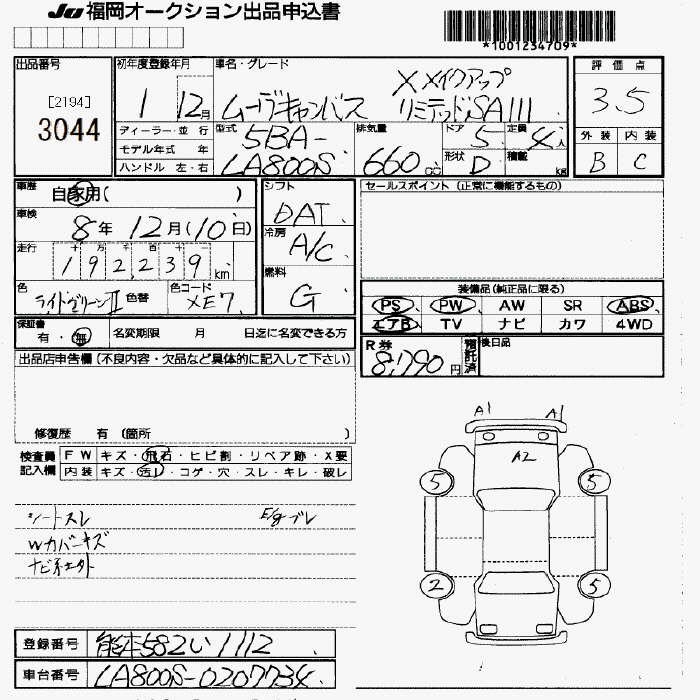 JU 福岡オークション出品申込書
*1001234709*
出品番号 [2194] 3044
初年度登録年月 1 12月
車名・グレード ムーヴキャンバス XメイクアップリミテッドSAIII
評価点 3.5
外装 B 内装 C
ディーラー・並行
モデル年式 年
ハンドル 左・右
型式 5BA-LA800S
排気量 660 cc
ドア 5 定員 4人
形状 D 積載 kg
車歴 自家用( )
車検 8年 12月(10日)
走行 十 万 千 百 十 192,239 km
色 ライトグリーンII 色替 色コード XE7
シフト DAT
冷房 A/C
燃料 G
セールスポイント (正常に機能するもの)
装備品(純正品に限る)
PS PW AW SR ABS
エアB TV ナビ カワ 4WD
保証書 有・無 名変期限 月 日迄に名変できる方
R券 8,790円 預託済 後日品
出品店申告欄(不良内容・欠品など具体的に記入して下さい)
修復歴 有 (箇所 )
検査員記入欄 FW キズ・飛石・ヒビ割・リペア跡・X要
内装 キズ・汚レ・コゲ・穴・スレ・キレ・破レ
シートスレ E/gブレ
Wカバーキズ
A1 A1
A2
5 5
2 5
登録番号 熊本582い1112
車台番号 LA800S-0207734